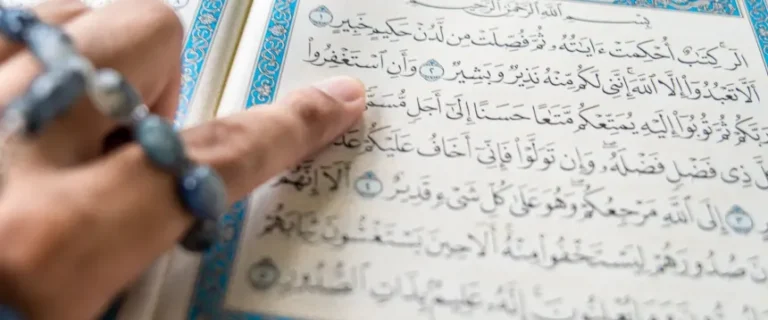 بِسْمِ ٱللَّهِ ٱلرَّحْمَٰنِ ٱلرَّحِيمِ
الٓر ۚ كِتَٰبٌ أُحْكِمَتْ ءَايَٰتُهُۥ ثُمَّ فُصِّلَتْ مِن لَّدُنْ حَكِيمٍ خَبِيرٍ ١
أَلَّا تَعْبُدُوٓا۟ إِلَّا ٱللَّهَ ۚ إِنَّنِى لَكُم مِّنْهُ نَذِيرٌ وَبَشِيرٌ ٢ وَأَنِ ٱسْتَغْفِرُوا۟
رَبَّكُمْ ثُمَّ تُوبُوٓا۟ إِلَيْهِ يُمَتِّعْكُم مَّتَٰعًا حَسَنًا إِلَىٰٓ أَجَلٍ مُّسَمًّى
ذِى فَضْلٍ فَضْلَهُۥ ۖ وَإِن تَوَلَّوْا۟ فَإِنِّىٓ أَخَافُ عَلَيْكُمْ
٣ إِلَى ٱللَّهِ مَرْجِعُكُمْ ۖ وَهُوَ عَلَىٰ كُلِّ شَىْءٍ قَدِيرٌ ٤ أَلَآ إِنَّهُمْ
صُدُورَهُمْ لِيَسْتَخْفُوا۟ مِنْهُ ۚ أَلَا حِينَ يَسْتَغْشُونَ ثِيَابَهُمْ
إِنَّهُۥ عَلِيمٌۢ بِذَاتِ ٱلصُّدُورِ ٥